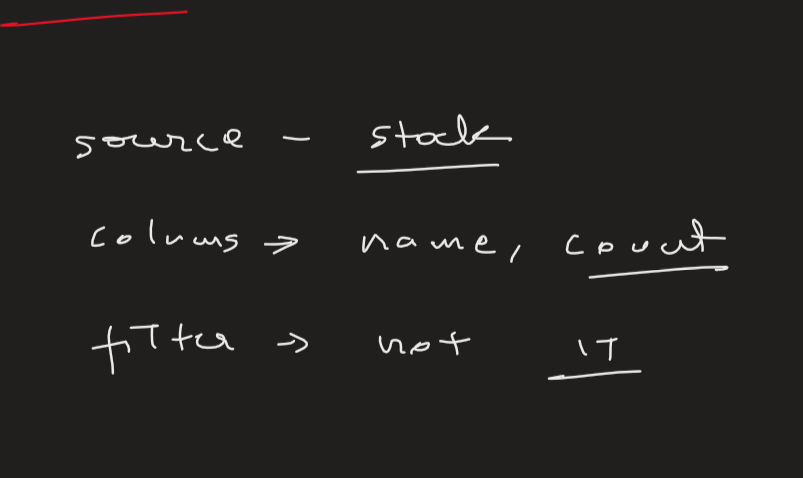 source - stock
colums → name, count
filter → not IT